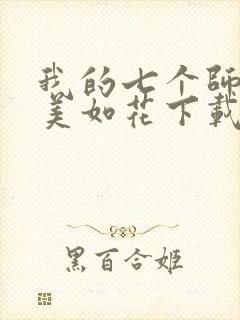 我的七个師
美如花下載
黑百合姬